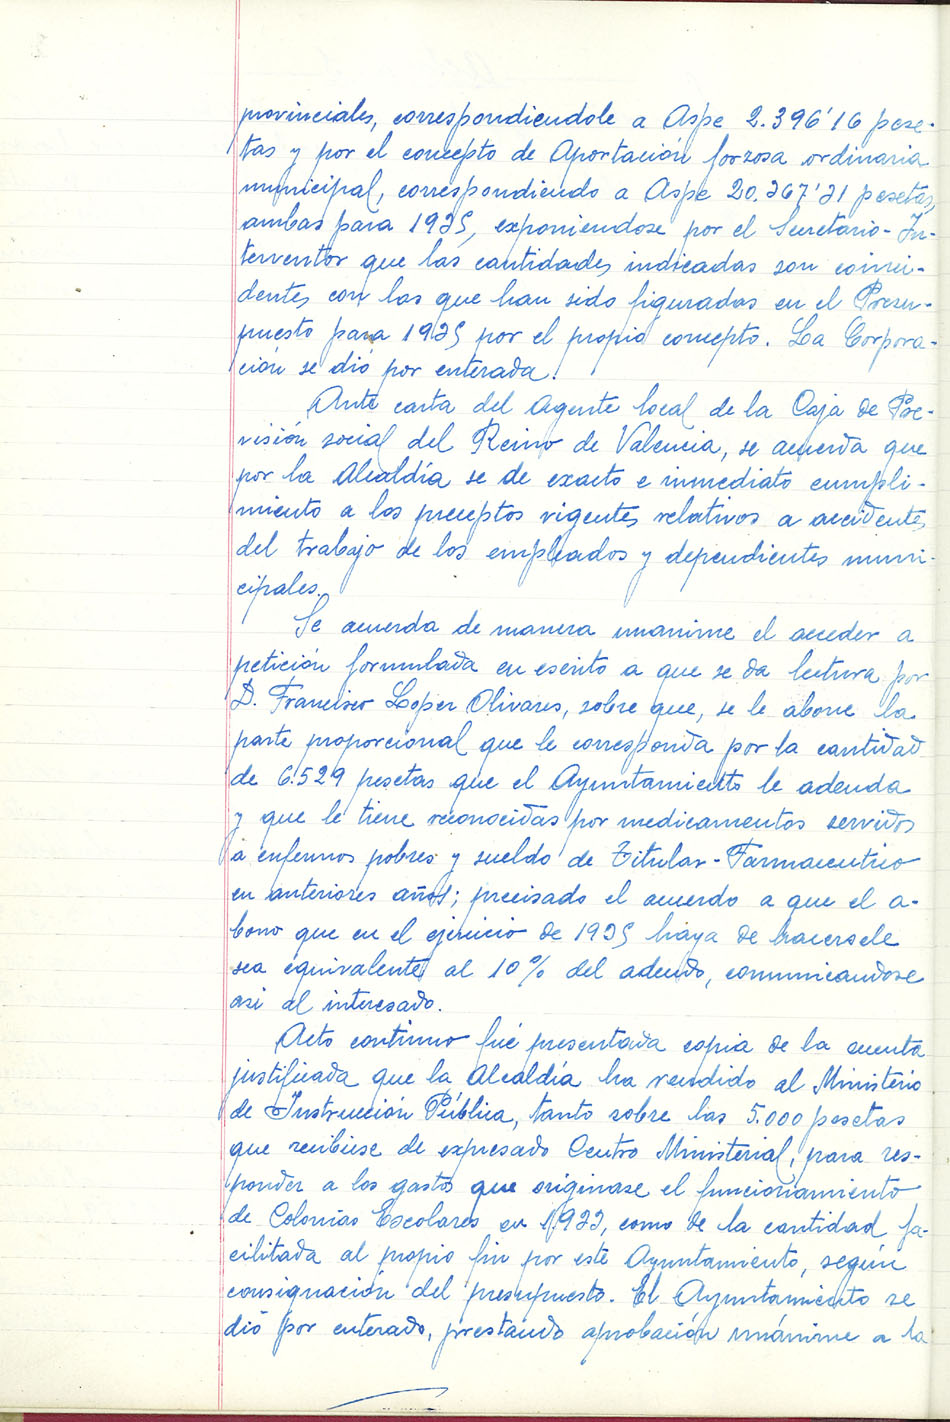 provinciales, correspondiendole a Aspe 2.396'16 pese-
tas y por el concepto de Aportación forzosa ordinaria
municipal, correspondiendo a Aspe 20.267'21 pesetas,
ambas para 1935, exponiendose por el Secretario-In-
terventor que las cantidades indicadas son coinci-
dentes con las que han sido figuradas en el Presu-
puesto para 1935 por el propio concepto. La Corpora-
ción se dió por enterada.
Ante carta del Agente local de la Caja de Pre-
visión social del Reino de Valencia, se acuerda que
por la Alcaldía se de exacto e inmediato cumpli-
miento a los preceptos vigentes relativos a accidentes
del trabajo de los empleados y dependientes muni-
cipales.
Se acuerda de manera unanime el acceder a
petición formulada en escrito a que se da lectura por
D. Francisco Lopez Olivares, sobre que, se le abone la
parte proporcional que le corresponda por la cantidad
de 6.529 pesetas que el Ayuntamiento le adeuda
y que le tiene reconocidas por medicamentos servidos
a enfermos pobres y sueldo de Titular-Farmaceutico
en anteriores años; precisado el acuerdo a que el a-
bono que en el ejercicio de 1935 haya de hacersele
sea equivalente al 10% del adeudo, comunicandose
asi al interesado.
Acto continuo fué presentada copia de la cuenta
justificada que la Alcaldía ha rendido al Ministerio
de Instrucción Pública, tanto sobre las 5.000 pesetas
que recibiese de expresado Centro Ministerial, para res-
ponder a los gastos que originase el funcionamiento
de Colonias Escolares en 1933, como de la cantidad fa-
cilitada al propio fin por este Ayuntamiento, según
consignación del presupuesto. El Ayuntamiento se
dió por enterado, prestando aprobación unánime a la